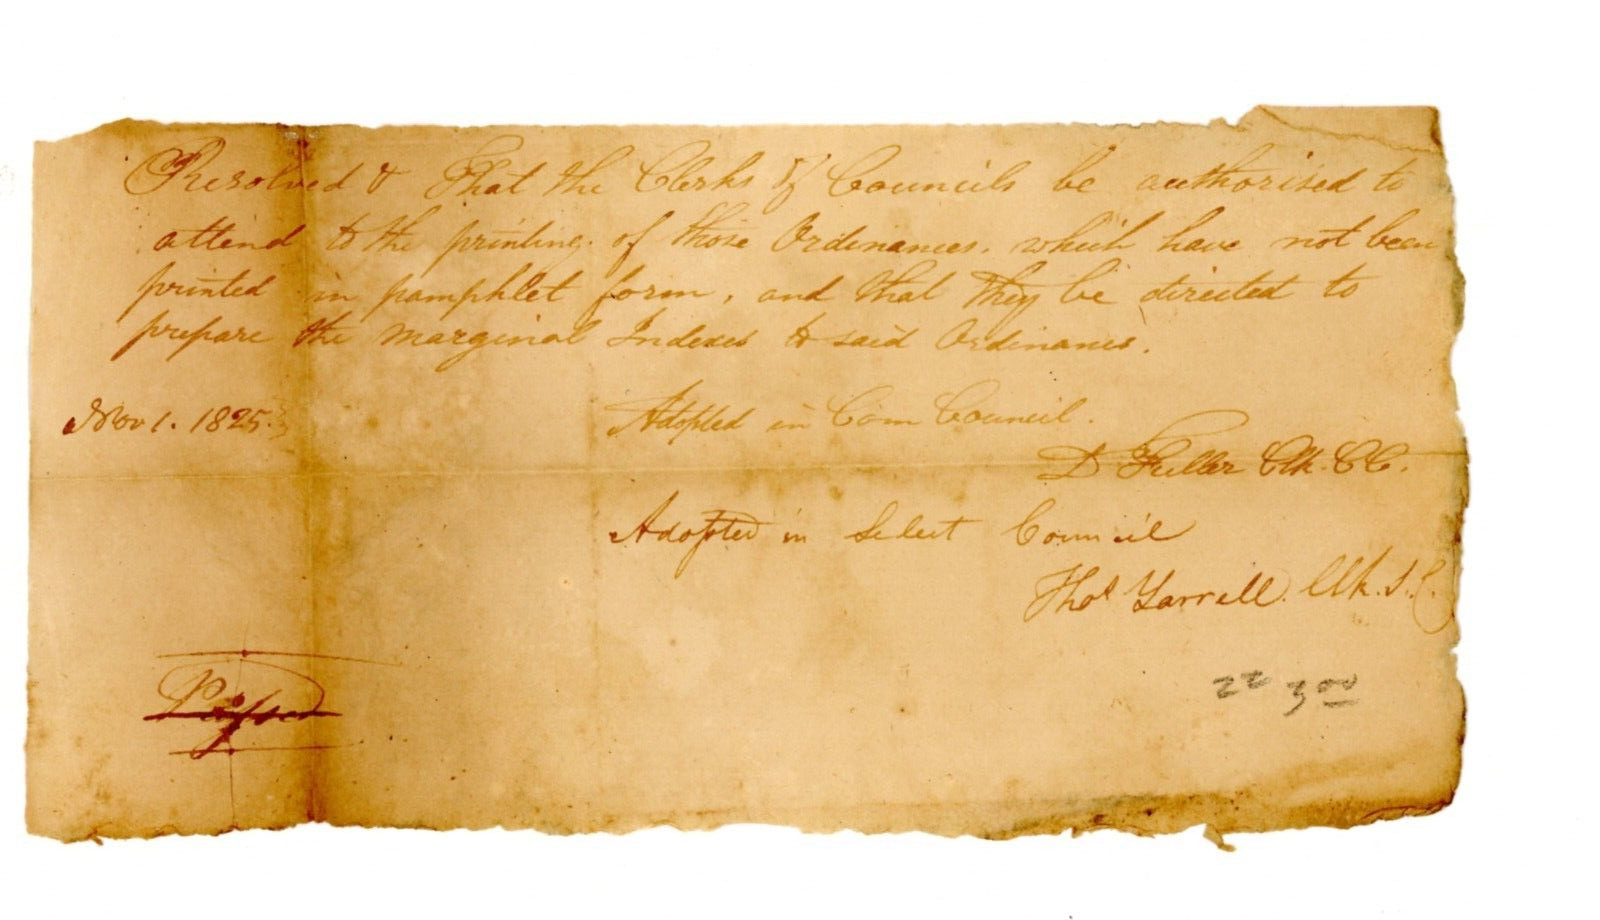 Resolved & That the Clerks of Councils be authorised to
attend to the printing of those Ordinances, which have not been
printed in pamphlet form, and that they be directed to
prepare the marginal Indexes to said Ordinances.
Nov 1. 1825.
Adopted in Com Council.
D Fuller Clk. C C.
Adopted in Select Council
Thos Yarrell. Clk. S. C.
Passed
22 3 00